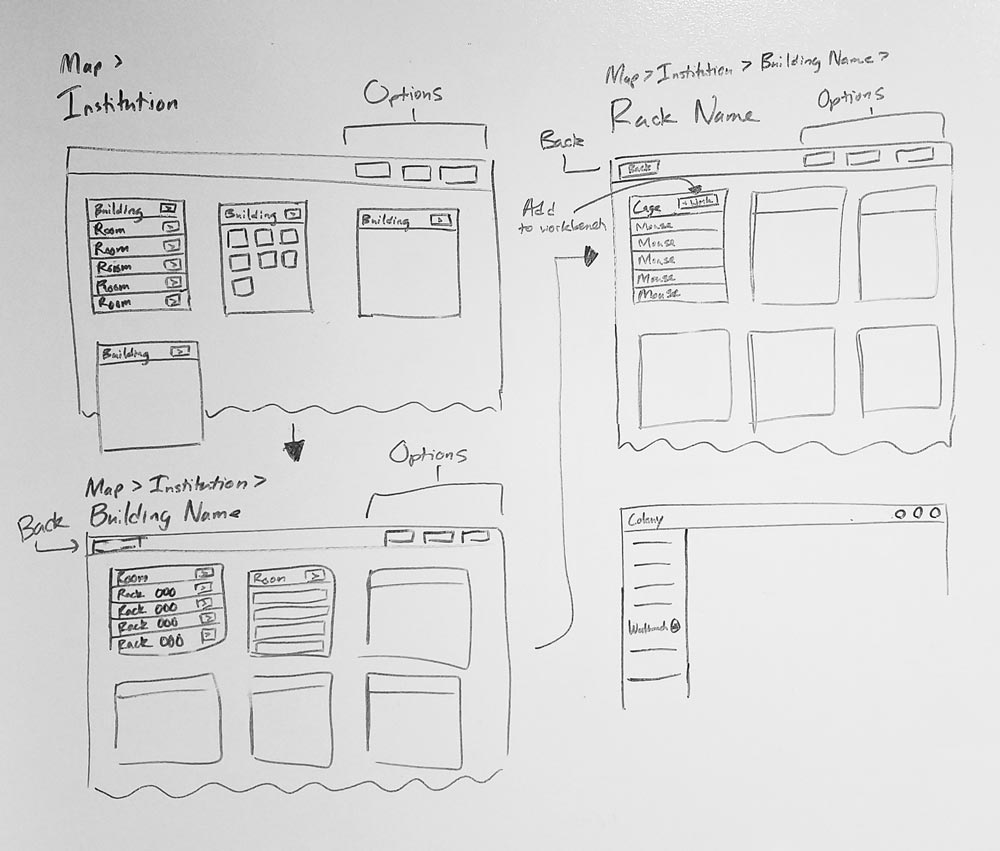 Map >
Institution
Options
Building >
Room >
Room >
Room >
Room >
Room >
Building >
Building >
Building >
Map > Institution >
Building Name
Options
Back
Room >
Rack 000 >
Rack 000 >
Rack 000 >
Rack 000 >
Room >
Map > Institution > Building Name >
Rack Name
Options
Back
Back
Add
to workbench
Cage + Work
Mouse
Mouse
Mouse
Mouse
Mouse
Colony
Workbench